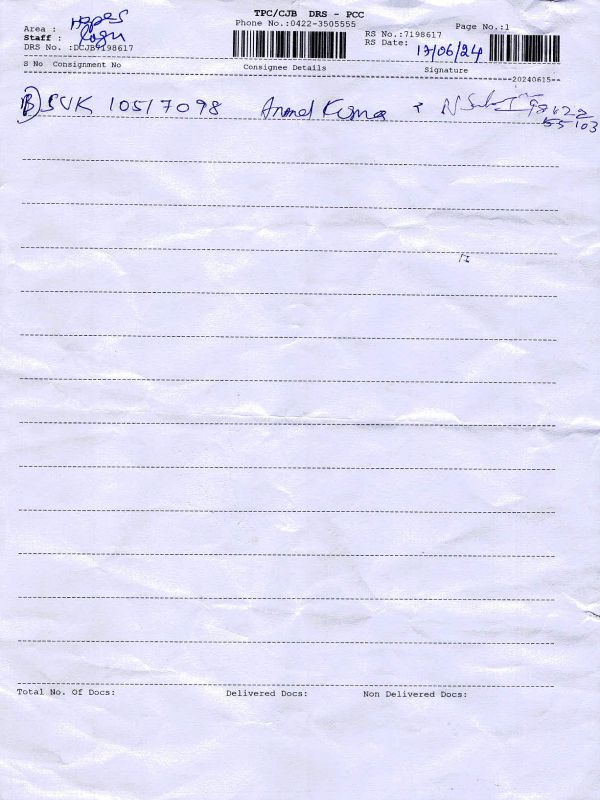 TPC/CJB DRS - PCC
Phone No.:0422-3505555
Page No.:1
Area : Hopes
Staff :
RS No.:7198617
DRS No. :DCJB7198617
RS Date: 17/06/24
S No Consignment No Consignee Details Signature
20240615
B SVK 10517098 Anand Kumar
Total No. Of Docs: Delivered Docs: Non Delivered Docs: